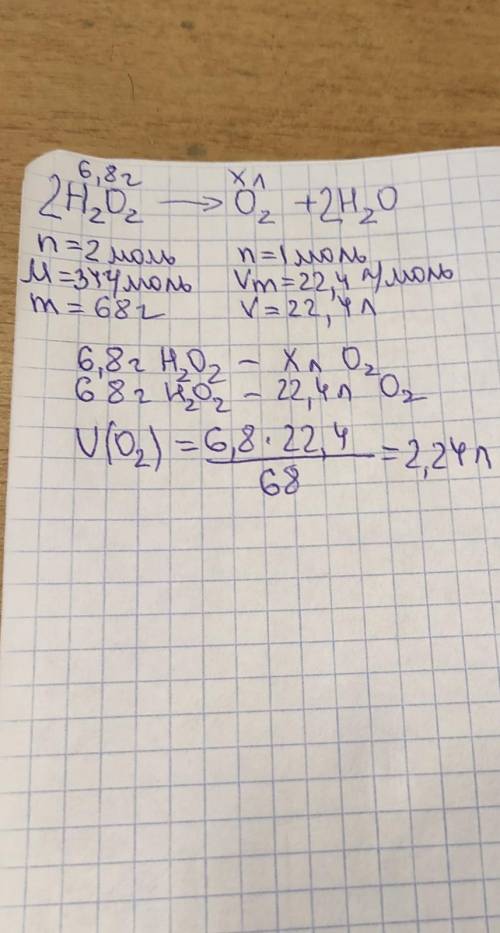 6,8г хл
2H₂O₂ → O₂ + 2H₂O
n=2моль n=1моль
M=34г/моль Vm=22,4 л/моль
m=68г V=22,4л
6,8г H₂O₂ – хл O₂
68г H₂O₂ – 22,4л O₂
V(O₂) = 6,8·22,4 = 2,24л
68